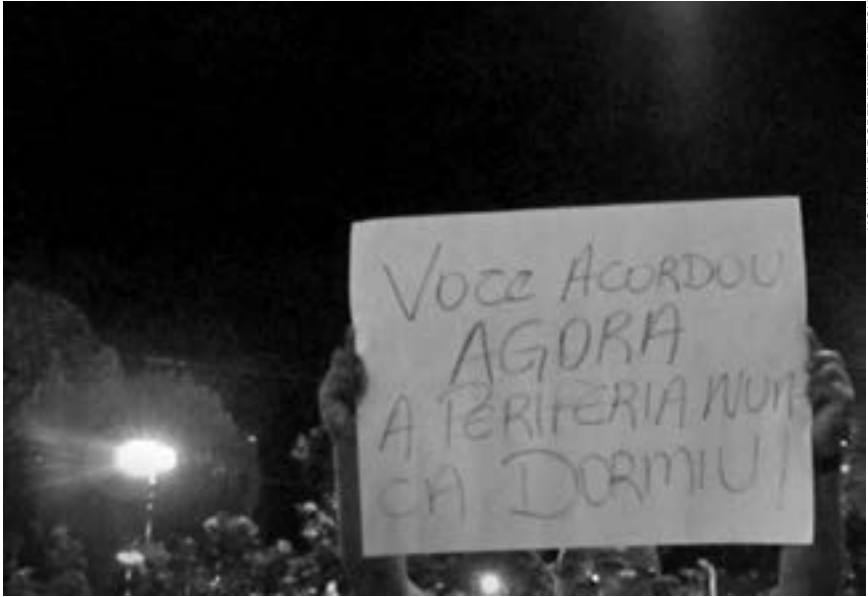 VOCE ACORDOU
AGORA
A PERIFERIA NUN-
CA DORMIU!